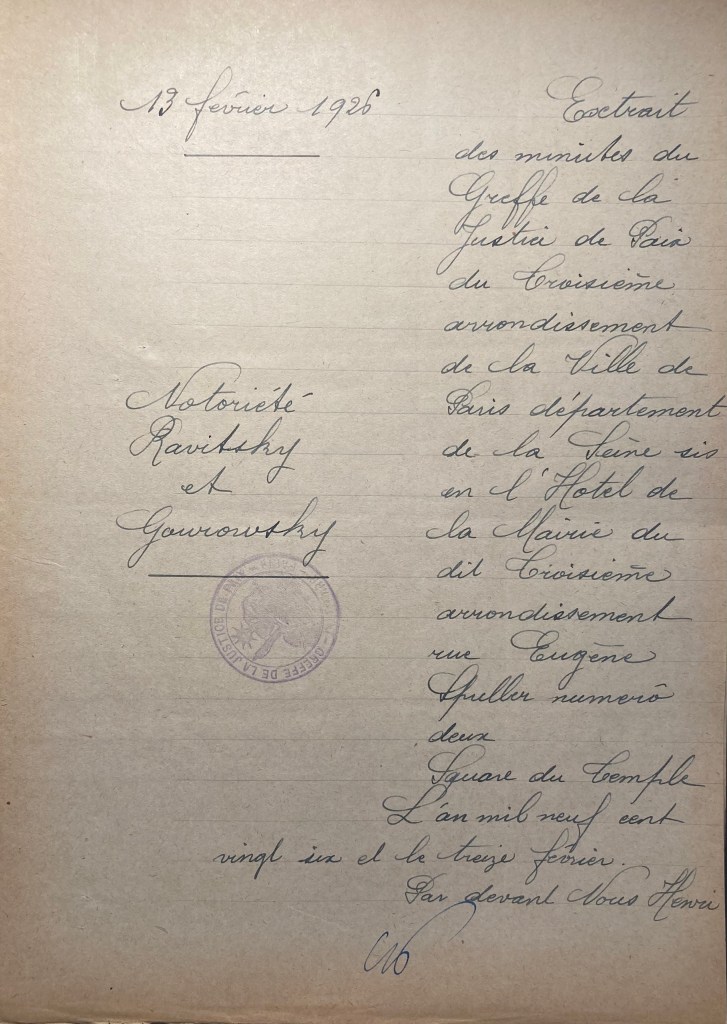 13 février 1926
Notoriété
Ravitsky
et
Gourowsky
GREFFE DE LA JUSTICE DE PAIX
Extrait
des minutes du
Greffe de la
Justice de Paix
du Troisième
arrondissement
de la Ville de
Paris département
de la Seine sis
en l'Hotel de
la Mairie du
dit Troisième
arrondissement
rue Eugène
Spuller numero
deux
Square du Temple
L'an mil neuf cent
vingt six et le treize février.
Par devant Nous Henri